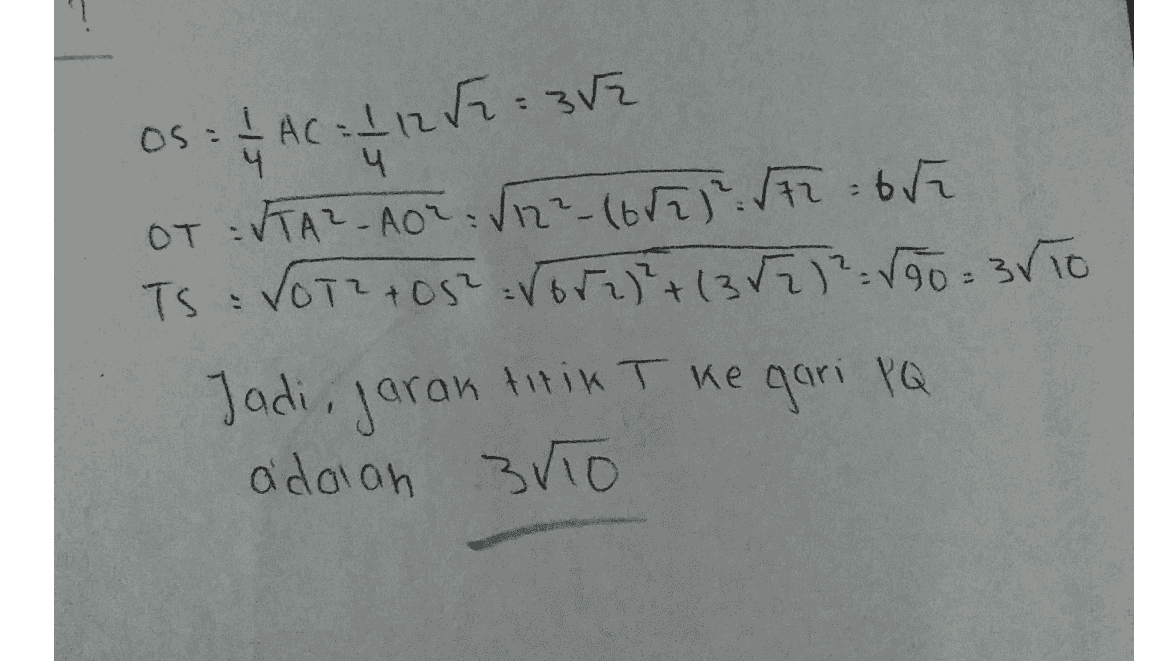 ?
OS = 1/4 AC = 1/4 12 √2 = 3√2
OT = √TA² - AO² = √12² - (6√2)² = √72 = 6√2
TS = √OT² + OS² = √6√2)² + (3√2)² = √90 = 3√10
Jadi, jarak titik T ke gari PQ
adalah 3√10